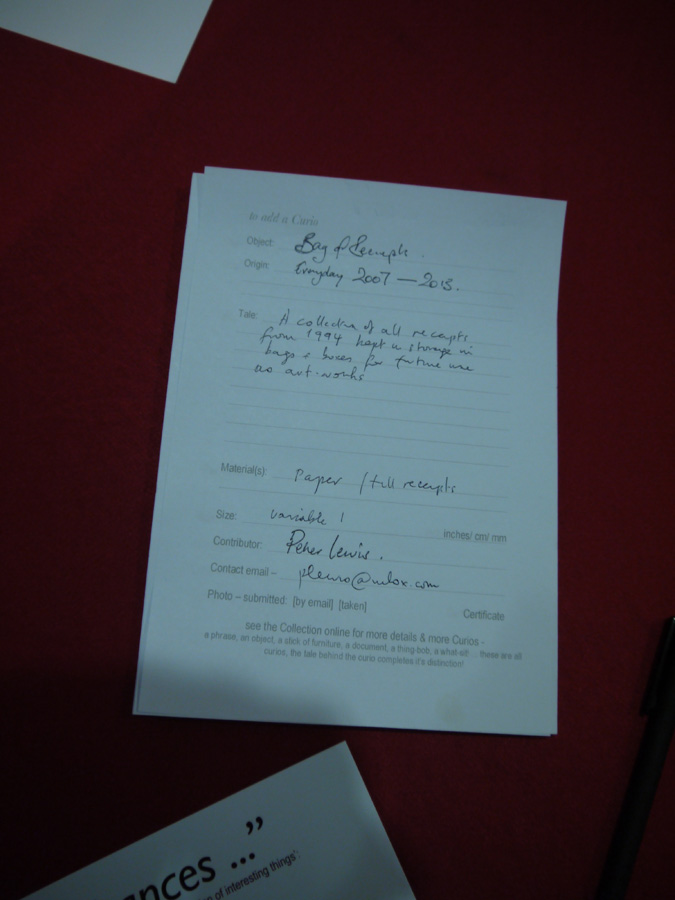 to add a Curio
Object: Bag of Receipts.
Origin: Everyday 2007 — 2013.
Tale: A collection of all receipts
from 1994 kept in storage in
bags + boxes for future use
as art-works
Material(s): Paper / till receipts
Size: variable ! inches/ cm/ mm
Contributor: Peter Lewis.
Contact email –
Photo – submitted: [by email] [taken] Certificate
see the Collection online for more details & more Curios -
a phrase, an object, a stick of furniture, a document, a thing-bob, a what-sit! ... these are all
curios, the tale behind the curio completes it's distinction!
ances ..."
of interesting things'.